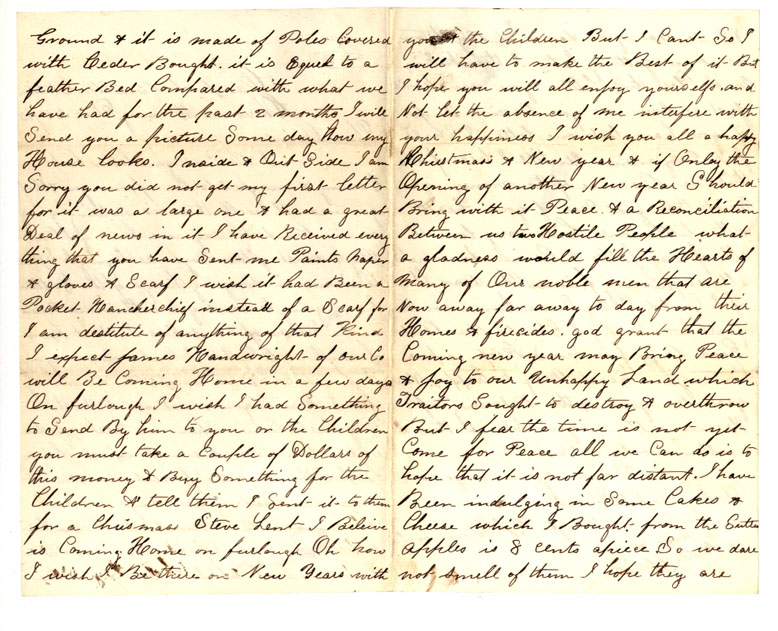 Ground & it is made of Poles Covered
with Ceder Bought. it is Equel to a
feather Bed Compared with what we
have had for the past 2 months I will
Send you a picture Some day how my
House looks. Inside & Out Side I am
Sorry you did not get my first letter
for it was a large one & had a great
Deal of news in it I have Received every
thing that you have Sent me Paints Paper
& gloves & Scarf I wish it had Been a
Pocket Hancherchief instead of a Scarf for
I am destitute of anything of that Kind
I expect James Handwright of our Co
will Be Coming Home in a few days
On furlough I wish I had Something
to Send By him to you or the Children
you must take a Couple of Dollars of
this money & Buy Something for the
Children & tell them I Sent it to them
for a Chrismass Steve Lent I Believe
is Coming Home on furlough Oh how
I wish I Be there on New Years with
you & the Children But I Cant So I
will have to make the Best of it But
I hope you will all enjoy yourselfs and
Not let the absence of me interfere with
your happiness I wish you all a happy
Christmass & New year & if Onlay the
Opening of another New year Should
Bring with it Peace. & a Reconciliation
Between us two Hostile People what
a gladness would fill the Hearts of
many of Our noble men that are
Now away far away to day from their
Homes & firesides. god grant that the
Coming new year may Bring Peace
& Joy to our Unhappy Land which
Traitors Sought to destroy & overthrow
But I fear the time is not yet
Come for Peace all we Can do is to
hope that it is not far distant. I have
Been indulging in Some Cakes &
Cheese which I Bought from the
apples is 8 cents apiece So we dare
not smell of them I hope they are